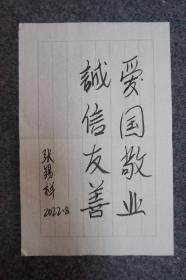 爱国敬业
誠信友善
张锡祥
2022.8